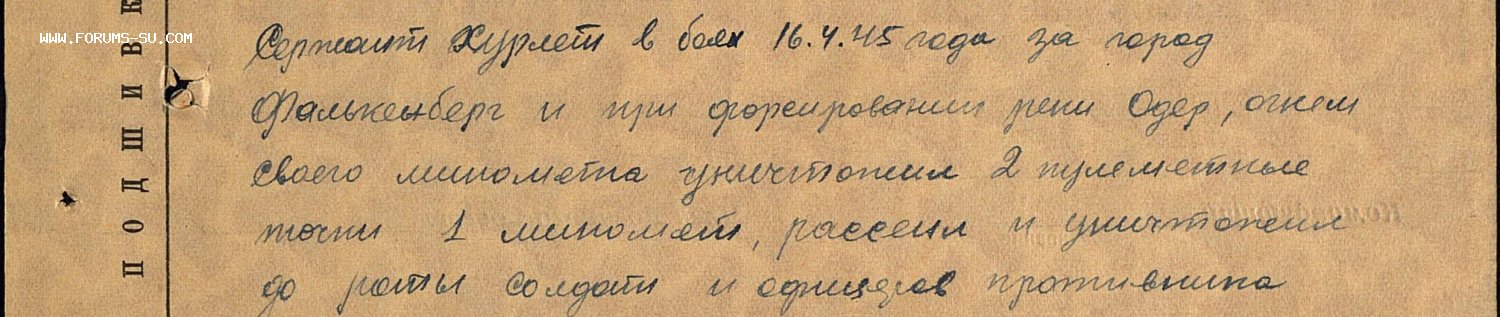 WWW.FORUMS-SU.COM
ПОДШИВК
Сержант Хурлет в боях 16.4.45 года за город
Фалькенберг и при форсировании реки Одер, огнем
своего миномета уничтожил 2 пулеметные
точки 1 миномет, рассеял и уничтожил
до роты солдат и офицеров противника